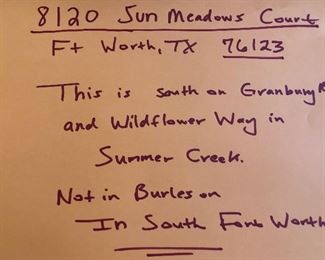 8120 Sun Meadows Court
Ft Worth, TX 76123
This is south on Granbury R
and Wildflower Way in
Summer Creek.
Not in Burleson
In South Fort Worth